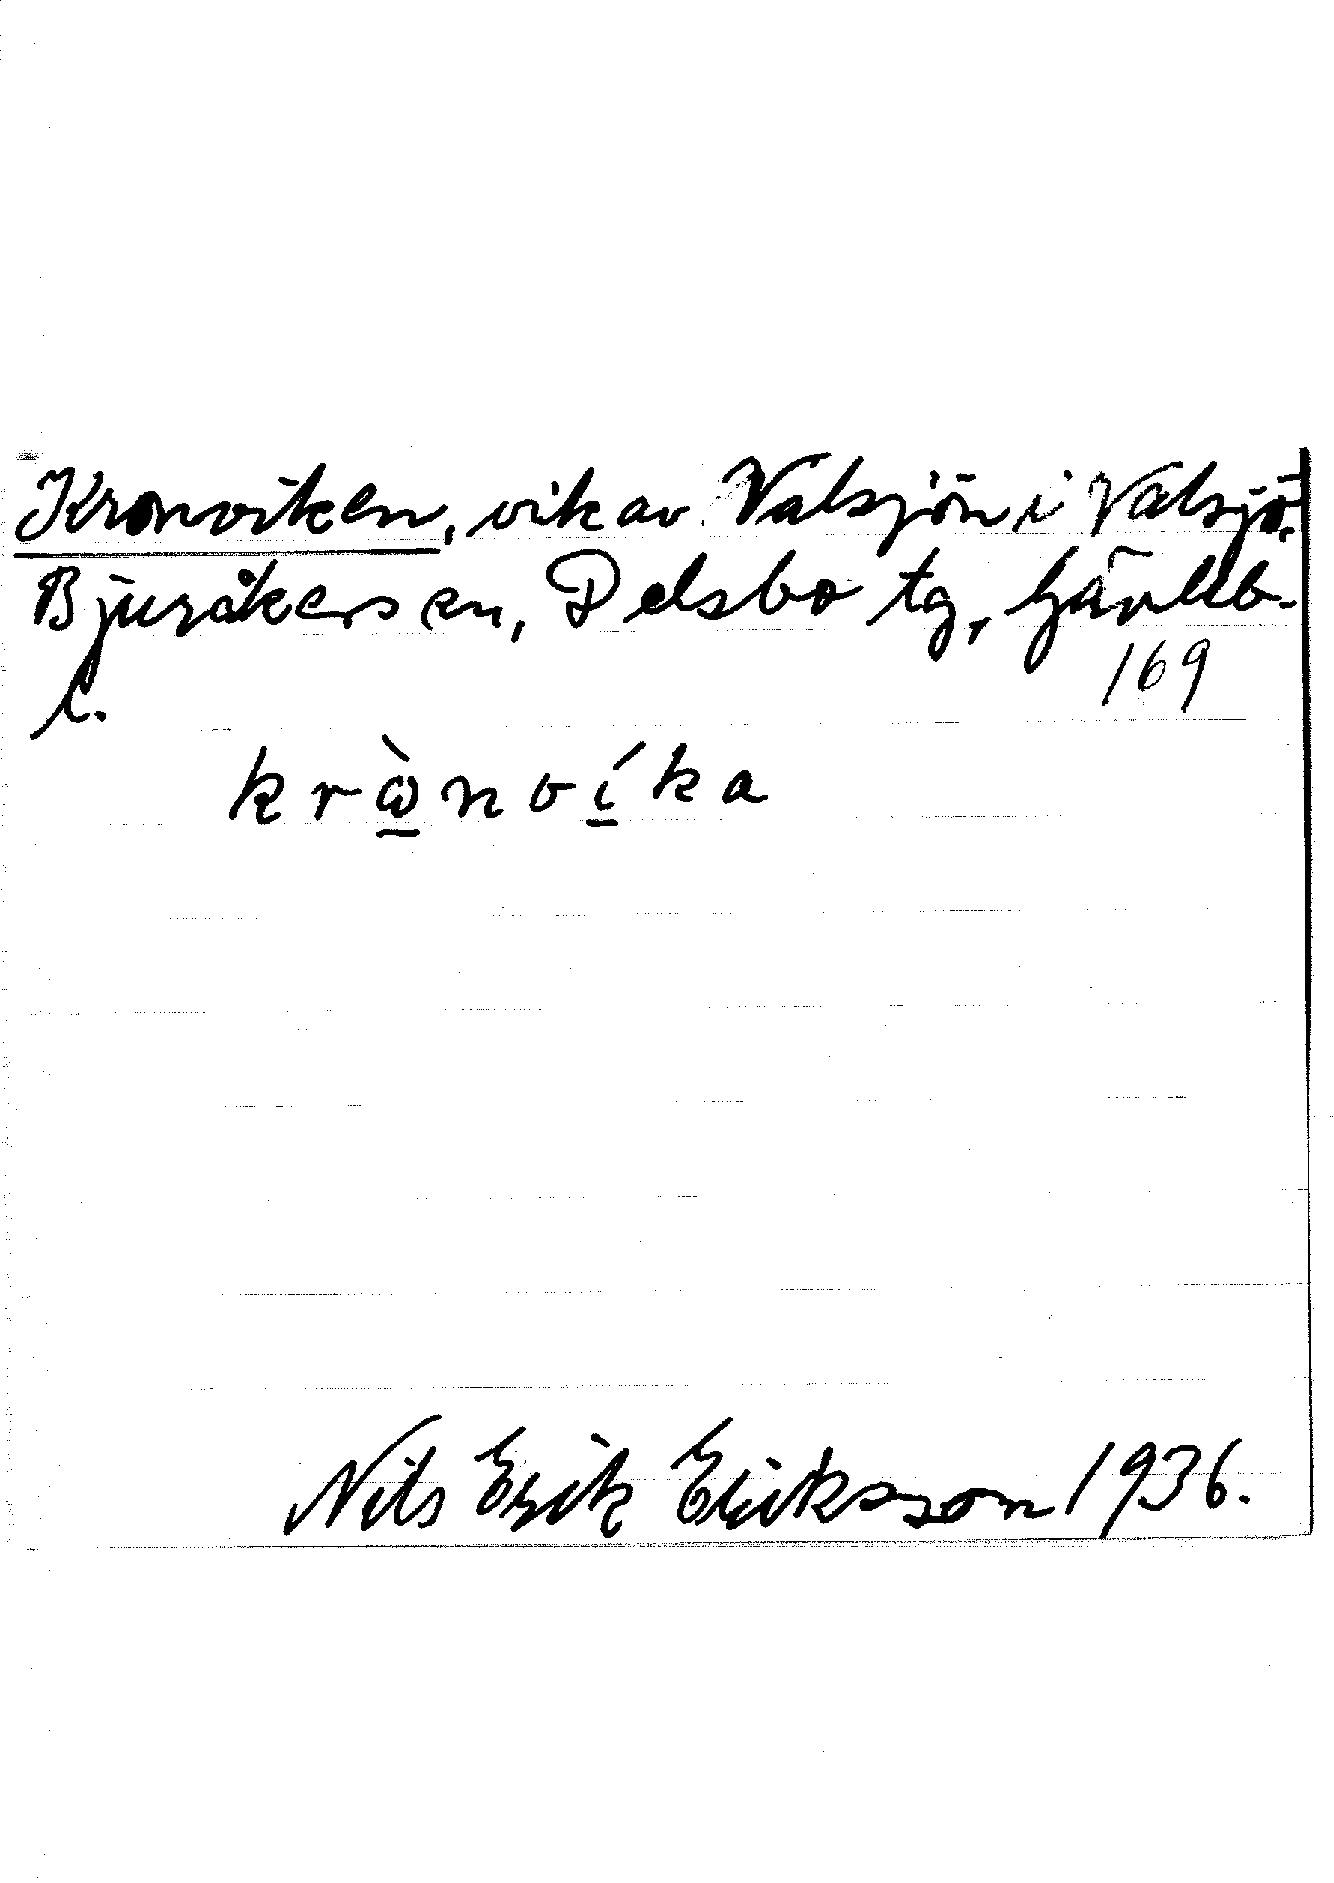 Kronviken, vik av Valsjön i Valsjö,
Bjuråkers sn, Delsbo tg, Gävleb.
l.
169
krὼ̲nví̲ka
Nils Erik Eriksson 1936.